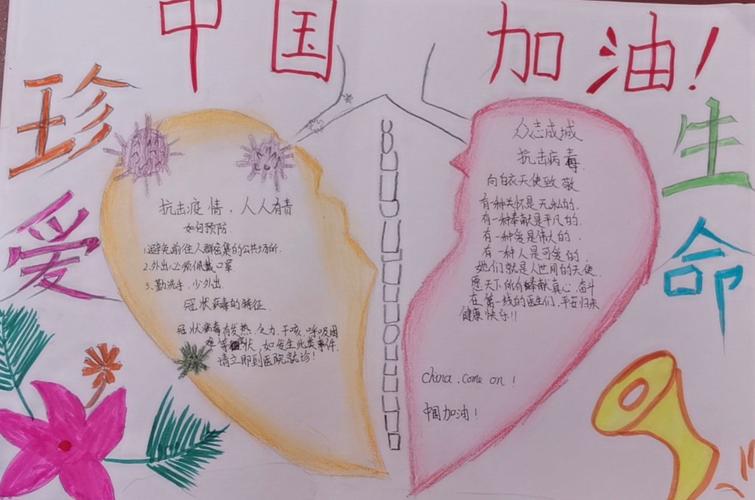 中国 加油！
珍爱
生命
抗击疫情，人人有责
如何预防
1.避免前往人群密集的公共场所.
2.外出必须佩戴口罩
3.勤洗手，少外出
冠状病毒的特征
冠状病毒有发热，乏力，干咳，呼吸困
难等症状，如发生此类事件.
请立即到医院就诊！
众志成城
抗击病毒
向白衣天使致敬
有一种关怀是无私的.
有一种奉献是平凡的.
有一种爱是伟大的.
有一种人是可爱的.
她们就是人世间的天使
愿天下所有奉献真心，奋斗
在第一线的医生们，平安归来
健康快乐！！
china，come on！
中国加油！